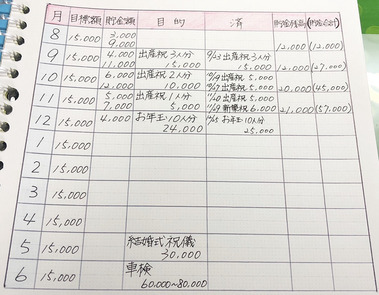 月 目標額 貯金額 目的 済 貯金残高 (貯金合計)
8 15,000 3,000
9,000 12,000 (12,000)
9 15,000 4,000 出産祝 3人分 9/13 出産祝 3人分
11,000 15,000 15,000 12,000 (27,000)
10 15,000 6,000 出産祝 2人分 出産祝 5,000
12,000 10,000 出産祝 5,000 20,000 (45,000)
11 15,000 5,000 出産祝 1人分 出産祝 5,000
7,000 5,000 6,000 21,000 (57,000)
12 15,000 4,000 お年玉 10人分 お年玉 10人分
24,000 25,000
1 15,000
2 15,000
3 15,000
4 15,000
5 15,000 結婚式祝儀
30,000
6 15,000 車検
60,000~80,000